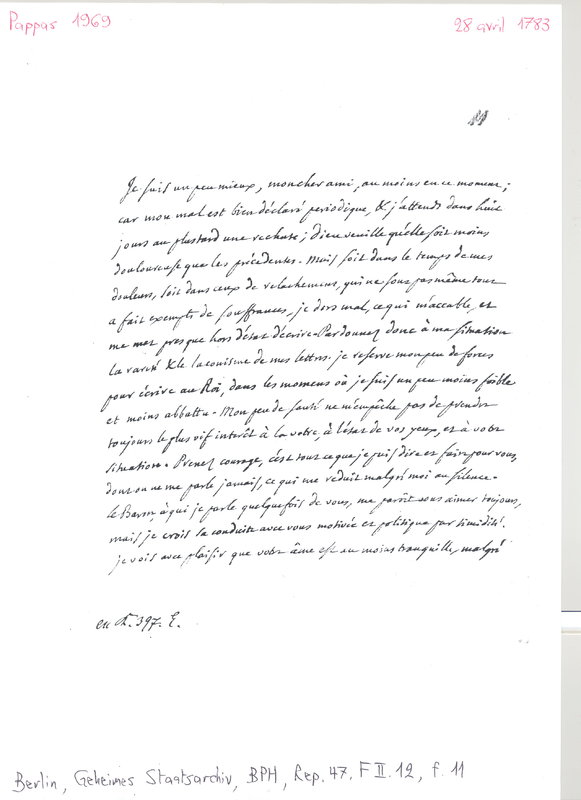 Pappas 1969
28 avril 1783
11
Je suis un peu mieux, mon cher ami, au moins en ce moment;
car mon mal est bien déclaré periodique, & j'attends dans huit
jours au plustard une rechute; Dieu veuille qu'elle soit moins
douloureuse que les précédentes. Mais soit dans le temps de mes
douleurs, soit dans ceux de relachemens, qui ne sont pas même tout
a fait exempts de souffrances, je dors mal, ce qui m'accable, et
me met presque hors d'état d'écrire. Pardonnez donc à ma situation
la rareté & la de mes lettres. je reserve mon peu de forces
pour écrire au Roi, dans les momens où je suis un peu moins foible
et moins abbattu. Mon peu de santé ne m'empêche pas de prendre
toujours le plus vif interêt à la votre, à l'état de vos yeux, et à votre
situation. Prenez courage, c'est tout ce que je puis dire et faire pour vous,
dont on ne me parle jamais, ce qui me reduit malgré moi au silence.
le Baron, à qui je parle quelquefois de vous, me paroît vous aimer toujours,
mais je crois sa conduite avec vous motivée et politique par timidité.
je vois avec plaisir que votre âme est au moins tranquille, malgré
397. E.
Berlin, Geheimes Staatsarchiv, BPH, Rep. 47, F II. 12, f. 11